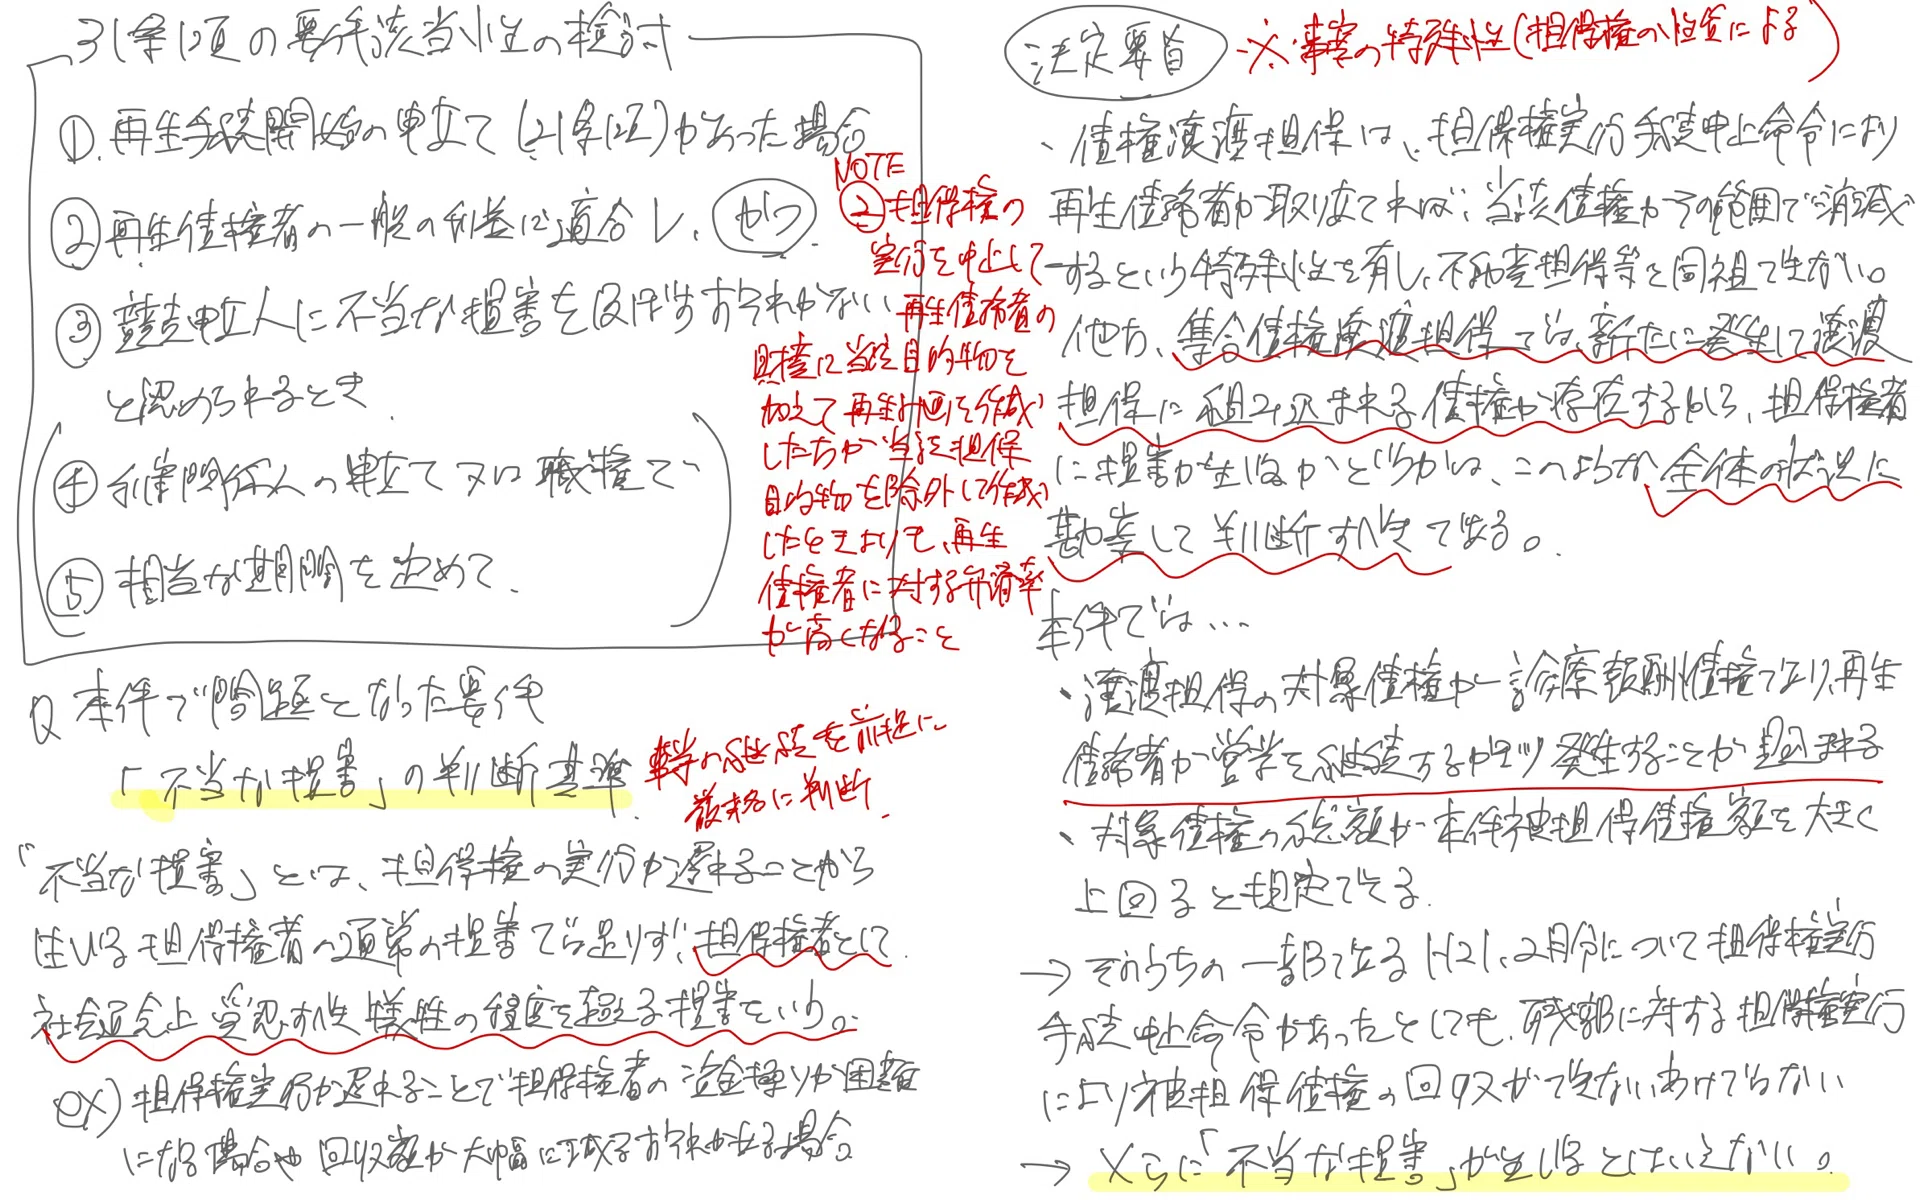 31条1項の要件該当性の検討
① 再生手続開始の申立て(21条1項)があった場合
② 再生債権者の一般の利益に適合し、かつ
③ 競売申立人に不当な損害を及ぼすおそれがない
と認められるとき
④ 利害関係人の申立て又は職権で
⑤ 相当な期間を定めて
NOTE
② 担保権の
実行を中止して
再生債務者の
財産に当該目的物を
加えて再生計画を作成
した方が当該担保
目的物を除外して作成
したときよりも、再生
債権者に対する弁済率
が高くなること
Q 本件で問題となった要件
「不当な損害」の判断基準
事業の継続を前提に
厳格に判断
「不当な損害」とは、担保権の実行が遅れることから
生じる担保権者の通常の損害では足りず、担保権者として
社会通念上受忍すべき犠牲の程度を超える損害をいう。
ex) 担保権実行が遅れることで担保権者の資金繰りが困難
になる場合や回収額が大幅に減るおそれがある場合。
決定要旨
※事案の特殊性(担保権の性質による)
・債権譲渡担保は、担保権実行手続中止命令により
再生債務者が取り立てれば、当該債権がその範囲で消滅
するという特殊性を有し、不動産担保等と同視できない。
他方、集合債権譲渡担保では、新たに発生して譲渡
担保に組み込まれる債権が存在するから、担保権者
に損害が生じるかどうかは、このような全体の状況に
勘案して判断すべきである。
本件では…
・譲渡担保の対象債権が診療報酬債権であり、再生
債務者が営業を継続するかぎり発生することが見込まれる
・対象債権の総額が本件被担保債権額を大きく
上回ると想定できる
→ そのうちの一部であるH21.2月分について担保権実行
手続中止命令があったとしても、残部に対する担保権実行
により被担保債権の回収ができないわけではない
→ Xらに「不当な損害」が生じるとはいえない。